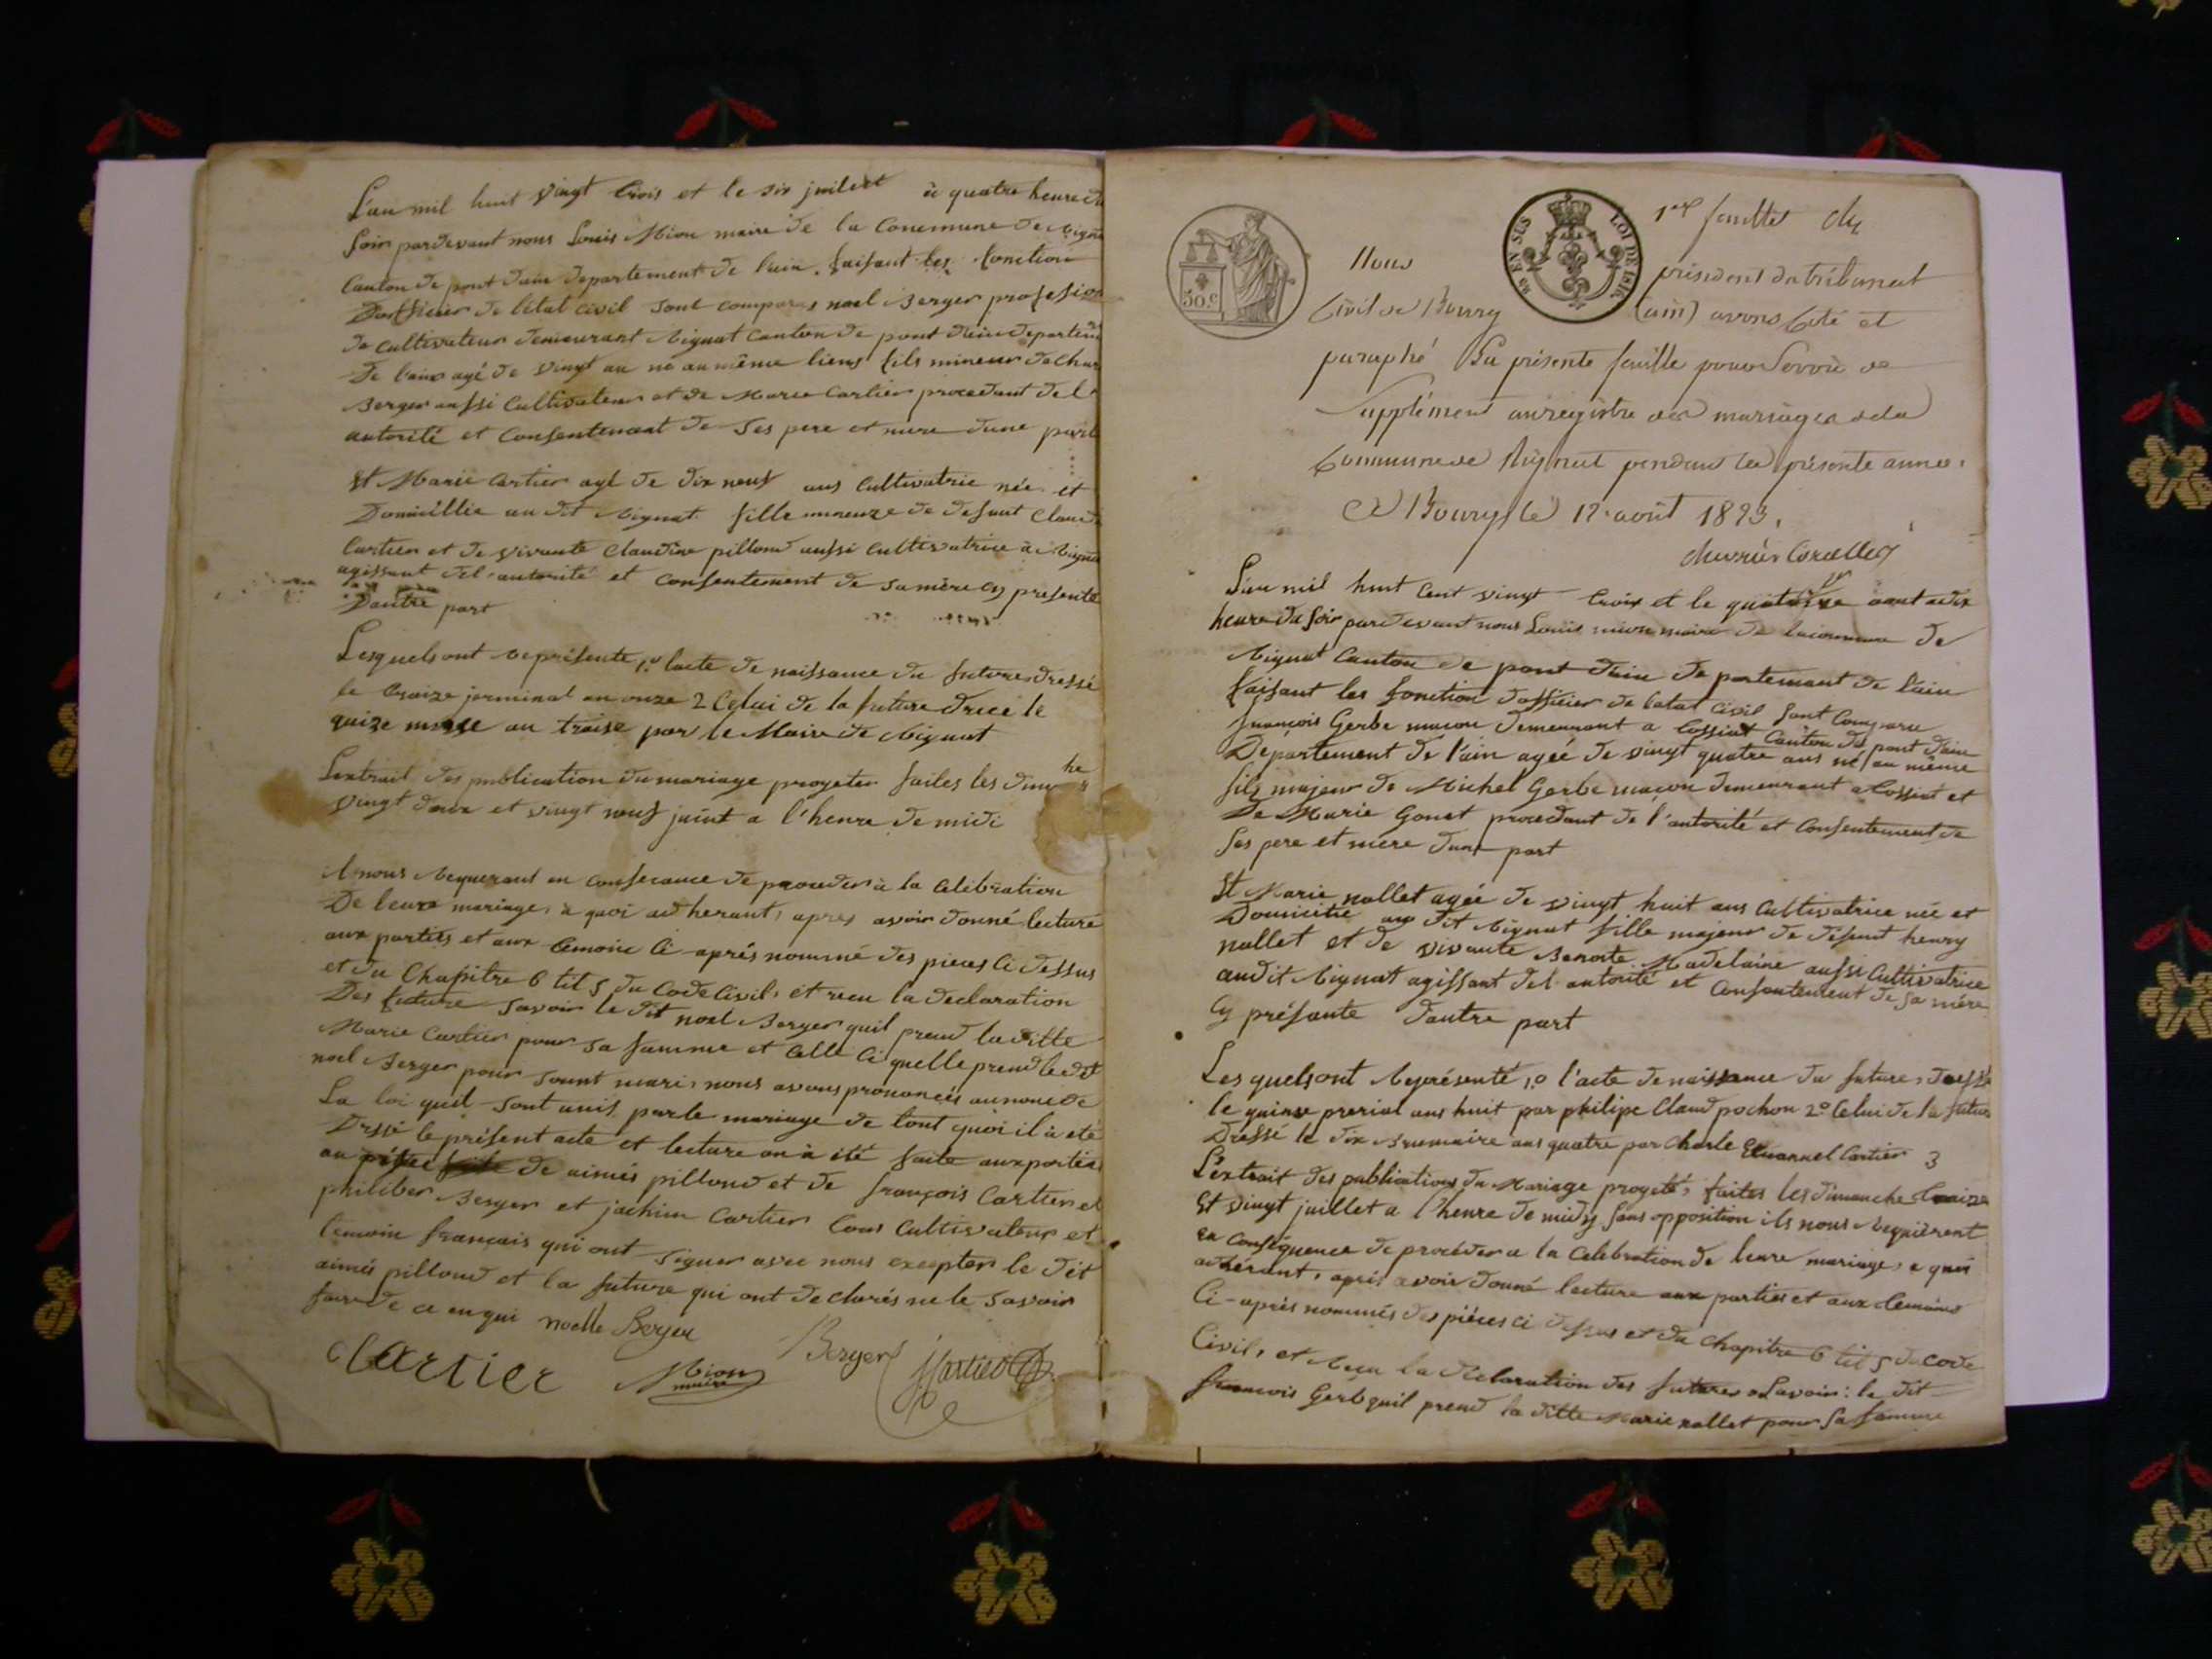 L'an mil huit vingt trois et le six juillet à quatre heure du
soir pardevant nous Louis Mion maire de la Commune de Rignat
Canton de pont dain departement de l'ain, faisant les fonction
Dofficier de l'état civil sont comparus noel Berger profession
de cultivateur demeurant Rignat canton de pont dain departem
de l'ain agé de vingt an né au même lieux fils mineur de Char
Berger aussi Cultivateur et de Marie Cartier procedant de l
autorité et Consentement de ses pere et mere dune part
Et Marie Cartier agé de dix neuf ans Cultivatrie née et
Domicillie au dit Rignat fille mineuze de defunt Claude
Cartier et de vivante Claudine pilloud aussi Cultivatrice à Rignat
agissant del'autorité et consentement de sa mère cy presente
Dautre part
Lesquels ont représente 1º lacte de naissance du future dressé
le traize jerminal an onze 2 Celui de la future drecé le
quize an traise par le Maire de Rignat
Lextrait des publication du mariage progeter faites les dimhe
vingt deux et vingt neuf juint a l'heure de midi
A nous requerant en consecance de proceder à la celebration
De leurs mariage, à quoi adherant, apres avoir donné lecture
aux parties et aux temoin Ci-après nommé des pieces Ci dessus
et du Chapitre 6 tit 5 du Code Civil, et recu la declaration
Des future savoir le dit noel Berger quil prend la ditte
Marie Cartier pour sa famme et celle Ci quelle prend le dit
noel Berger pour sount mari, nous avons prononcés aunom de
La loi quil sont unis par le mariage de tout quoi il à été
Dressé le présent acte et lecture an à été faite aux parties
au de aimés pilloud et de françois Cartier et
philiber Berger et jachim Cartier tous Cultivateur et
temoin français qui ont signer avec nous excepter le dit
aimés pilloud et la future qui ont declarés ne le savoir
faire de ce enqui noelle Berger
Cartier Mion Berger J Cartier
maire
50.c
EN SUS LOI DE 1816
1er feuillet
Nous président du tribunal
Civil de Bourg (ain) avons coté et
paraphé La présente feuille pour servir de
Supplément au registre des mariages de la
Commune de Rignat pendant la présente année.
A Bourg le 12 août 1823.
Chevrier Corcelles
L'an mil huit Cent vingt trois et le quatorze aout a dix
heure du soir pardevant nous Louis mion maire de lacommune de
Rignat Canton de pont dain departemant de l'ain
faisant les fonction dofficier de l'atat Civil sont Comparu
françois Gerbe maçon demeurant a Cossiat Canton de pont dain
Departement de l'ain agée de vingt quatre ans né au même
fils majeur de Michel Gerbe maçon demeurant a Cossiat et
De Marie Gonet procedant de l'autorité et Consentement de
ses pere et mere dune part
Et Marie nallet agée de vingt huit ans Cultivatrice née et
Domicitié au dit Rignat fille majeur de défunt henry
nallet et de vivante Benoite Madelaine aussi Cultivatrice
audit Rignat agissant del autorité et Consentement de sa mére
Cy présante dautre part
Les quels ont représenté 1º l'acte de naissance du future, dressé
le quinze prerial ans huit par philipe Claud pochon 2º Celui de la future
Dressé le dix Brumaire ans quatre par Charle Emannel Cartier 3
L'extrait des publications du Mariage progeté, faites les dimanche traize
Et vingt juillet a l'heure de midy sans opposition ils nous requièrent
en Conséquence de procéder a la Celebration de leure mariage, a quoi
adhérant, après avoir donné lecture aux parties et aux temoins
Ci-après nommés des piéces ci dessus et du chapitre 6 tit 5 du code
Civil, et reçu la déclaration des futures Savoir : le dit
françois Gerbe quil prend la ditte Marie nallet pour sa famme